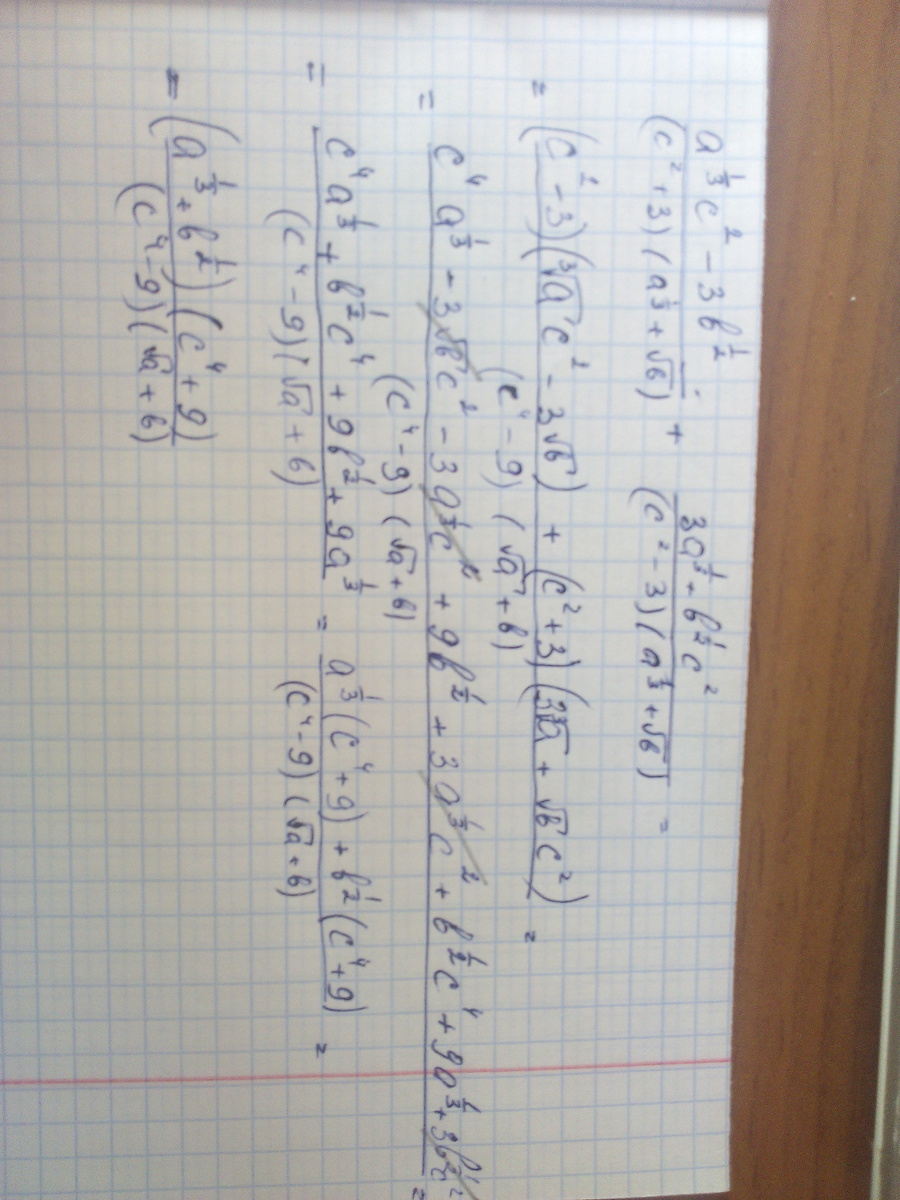 (a^{1/3}c² - 3b^{1/2})/((c²+3)(a^{1/3}+√b)) + (3a^{1/3}+b^{1/2}c²)/((c²-3)(a^{1/3}+√b)) =
= ((c²-3)(∛a c² - 3√b) + (c²+3)(3∛a + √b c²))/((c⁴-9)(√a+b)) =
= (c⁴a^{1/3} - 3√b c² - 3a^{1/3}c² + 9b^{1/2} + 3a^{1/3}c² + b^{1/2}c⁴ + 9a^{1/3} + 3b^{1/2}c²)/((c⁴-9)(√a+b)) =
= (c⁴a^{1/3} + b^{1/2}c⁴ + 9b^{1/2} + 9a^{1/3})/((c⁴-9)(√a+b)) = (a^{1/3}(c⁴+9) + b^{1/2}(c⁴+9))/((c⁴-9)(√a+b)) =
= ((a^{1/3}+b^{1/2})(c⁴+9))/((c⁴-9)(√a+b))